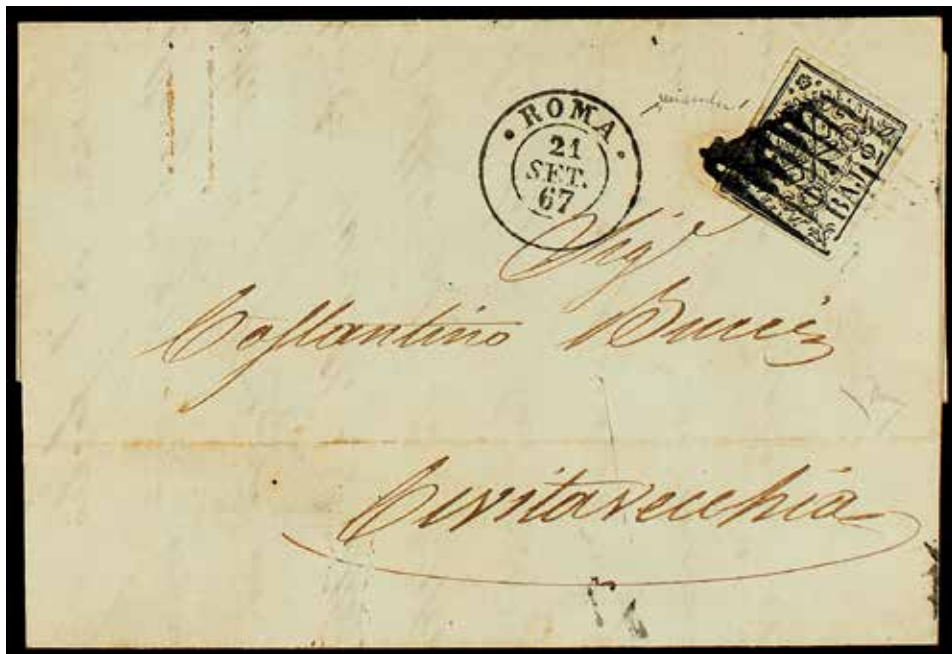 ROMA
21
SET.
67
BAJ
Sig.r
Costantino Bucci
Civitavecchia